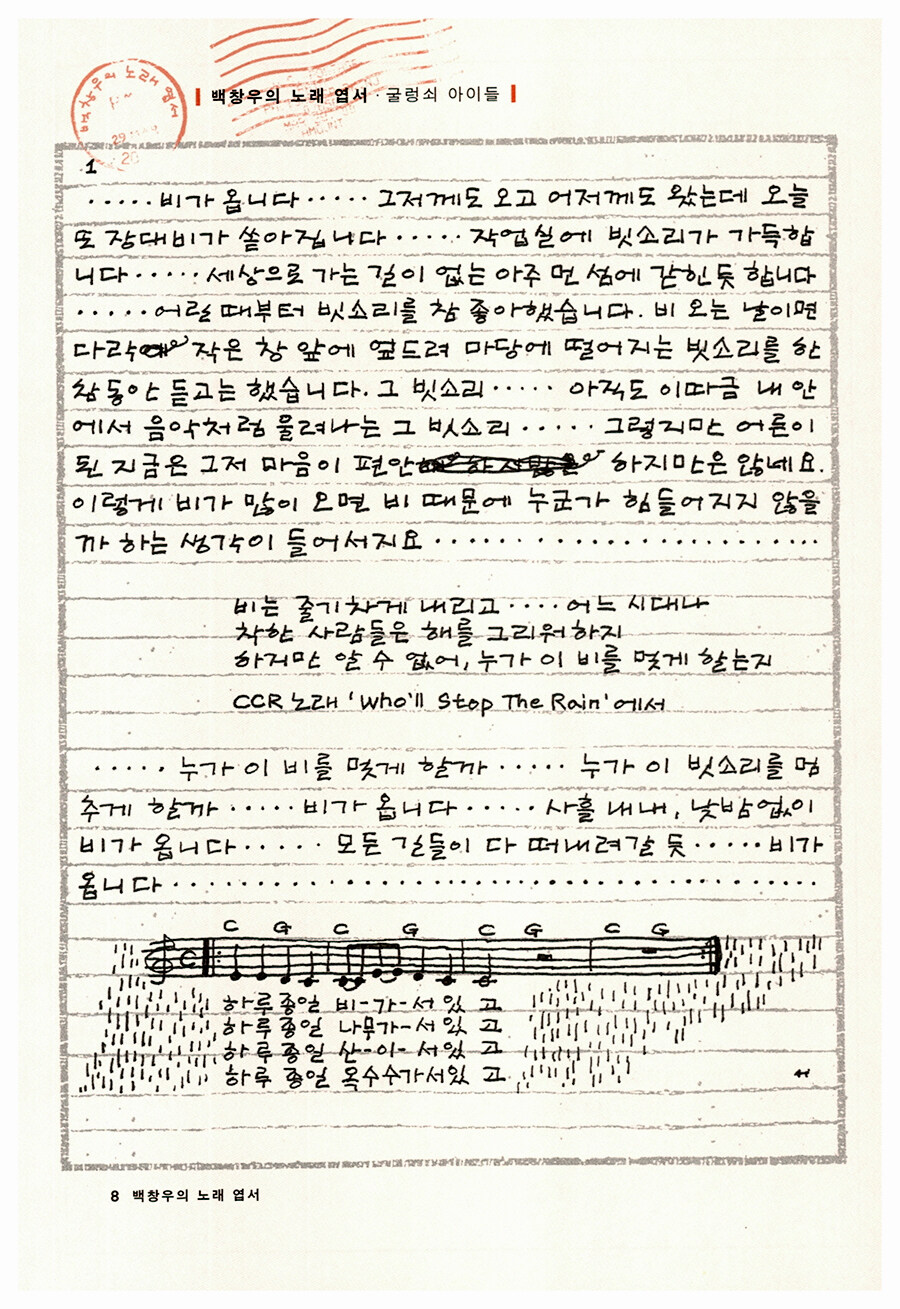 백창우의 노래 엽서
29
20
백창우의 노래 엽서 · 굴렁쇠 아이들
1
·····비가 옵니다····· 그저께도 오고 어저께도 왔는데 오늘
또 장대비가 쏟아집니다····· 작업실에 빗소리가 가득합
니다····· 세상으로 가는 길이 없는 아주 먼 섬에 갇힌 듯 합니다
·····어릴 때부터 빗소리를 참 좋아했습니다. 비 오는 날이면
다락 작은 창 앞에 엎드려 마당에 떨어지는 빗소리를 한
참동안 듣고는 했습니다. 그 빗소리····· 아직도 이따금 내 안
에서 음악처럼 울려나는 그 빗소리····· 그렇지만 어른이
된 지금은 그저 마음이 편안 하지만은 않네요.
이렇게 비가 많이 오면 비 때문에 누군가 힘들어지지 않을
까 하는 생각이 들어서지요·······················
비는 줄기차게 내리고····어느 시대나
착한 사람들은 해를 그리워하지
하지만 알 수 없어, 누가 이 비를 멎게 할는지
CCR 노래 'Who'll Stop The Rain'에서
·····누가 이 비를 멎게 할까····· 누가 이 빗소리를 멈
추게 할까····· 비가 옵니다····· 사흘 내내, 낮밤없이
비가 옵니다····· 모든 길들이 다 떠내려갈 듯·····비가
옵니다·······································
C G C G C G C G
하루종일 비-가-서있 고
하루종일 나무가-서있 고
하루종일 산-이-서있 고
하루종일 옥수수가서있 고
8 백창우의 노래 엽서